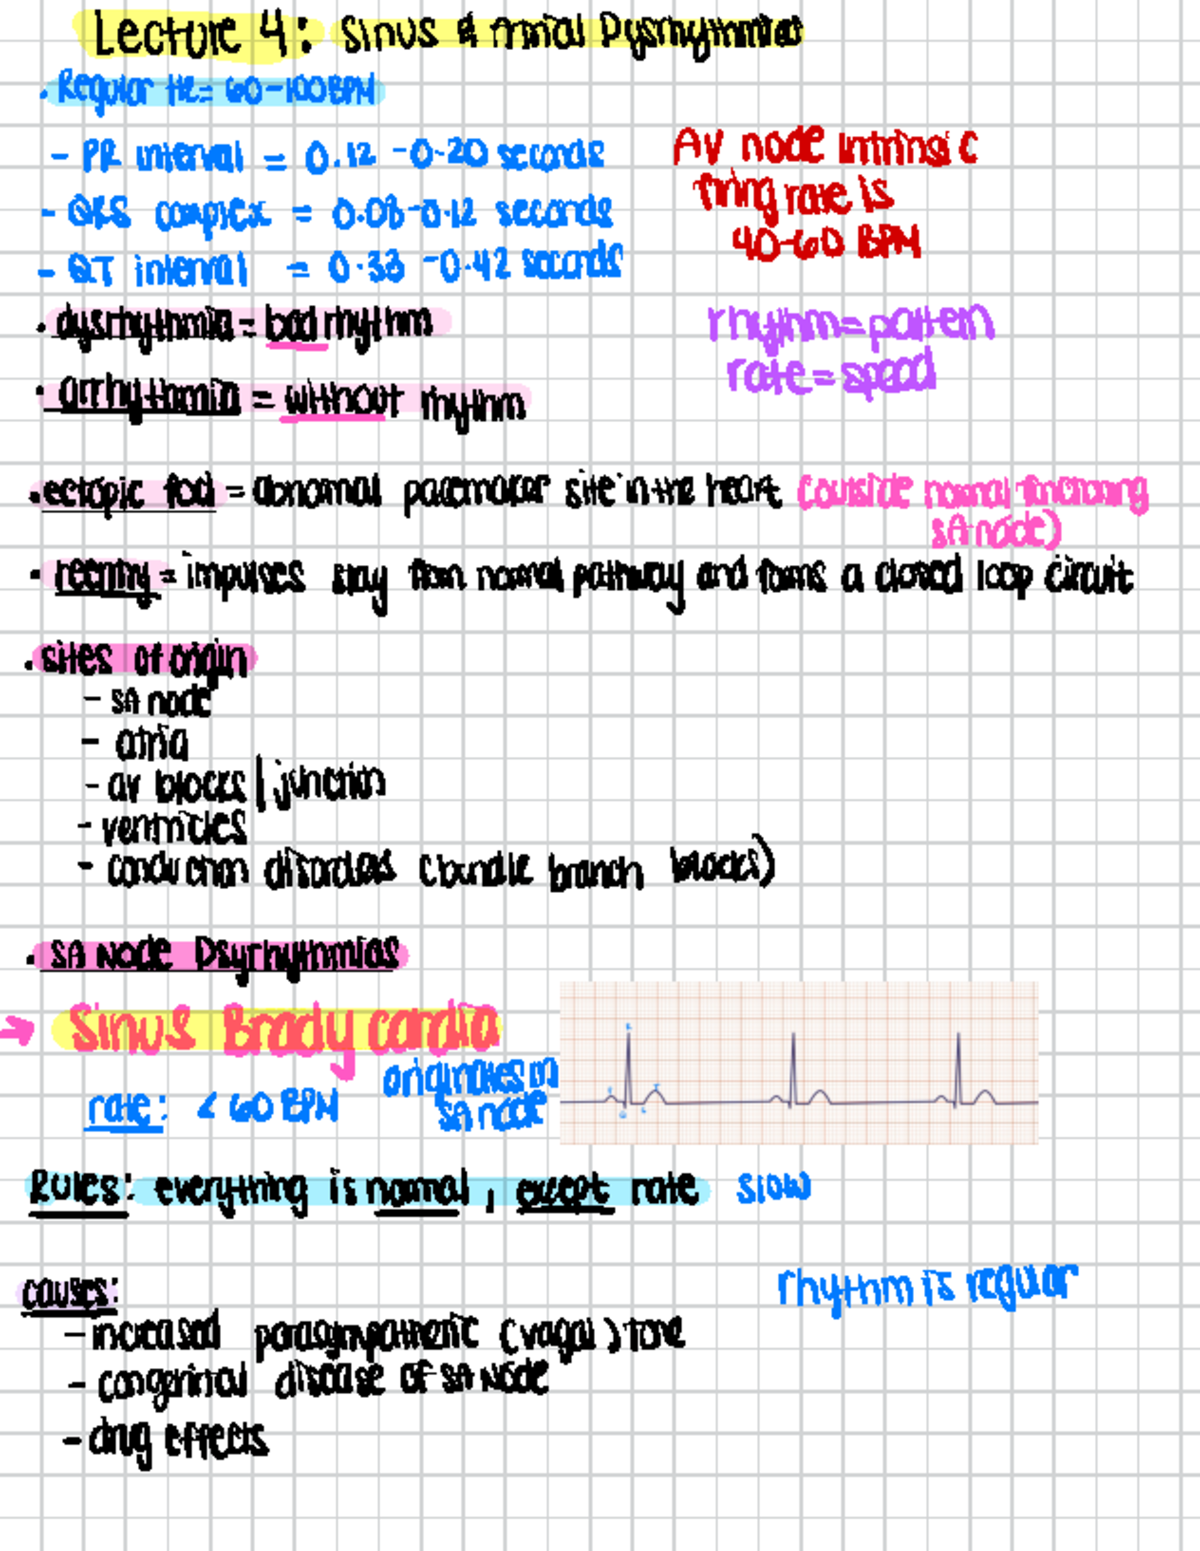 Lecture 4: Sinus & Atrial Dysrhythmias
• Regular HR= 60-100BPM
- PR interval = 0.12 -0.20 seconds
- QRS complex = 0.08-0.12 seconds
- QT interval = 0.33 -0.42 seconds
AV node intrinsic
firing rate is
40-60 BPM
• dysrhythmia = bad rhythm
• arrhythmia = without rhythm
rhythm=pattern
rate=speed
• ectopic foci = abnormal pacemaker site in the heart (outside normal functioning
SA node)
• reentry = impulses stay from normal pathway and forms a closed loop circuit
• sites of origin
- SA node
- atria
- av blocks/junction
- ventricles
- conduction disorders (bundle branch blocks)
• SA Node Dsyrhythmias
→ Sinus Bradycardia
rate: < 60 BPM
originates in
SA node
Rules: everything is normal, except rate slow
causes:
rhythm is regular
- increased parasympathetic (vagal) tone
- congenital disease of SA Node
- drug effects